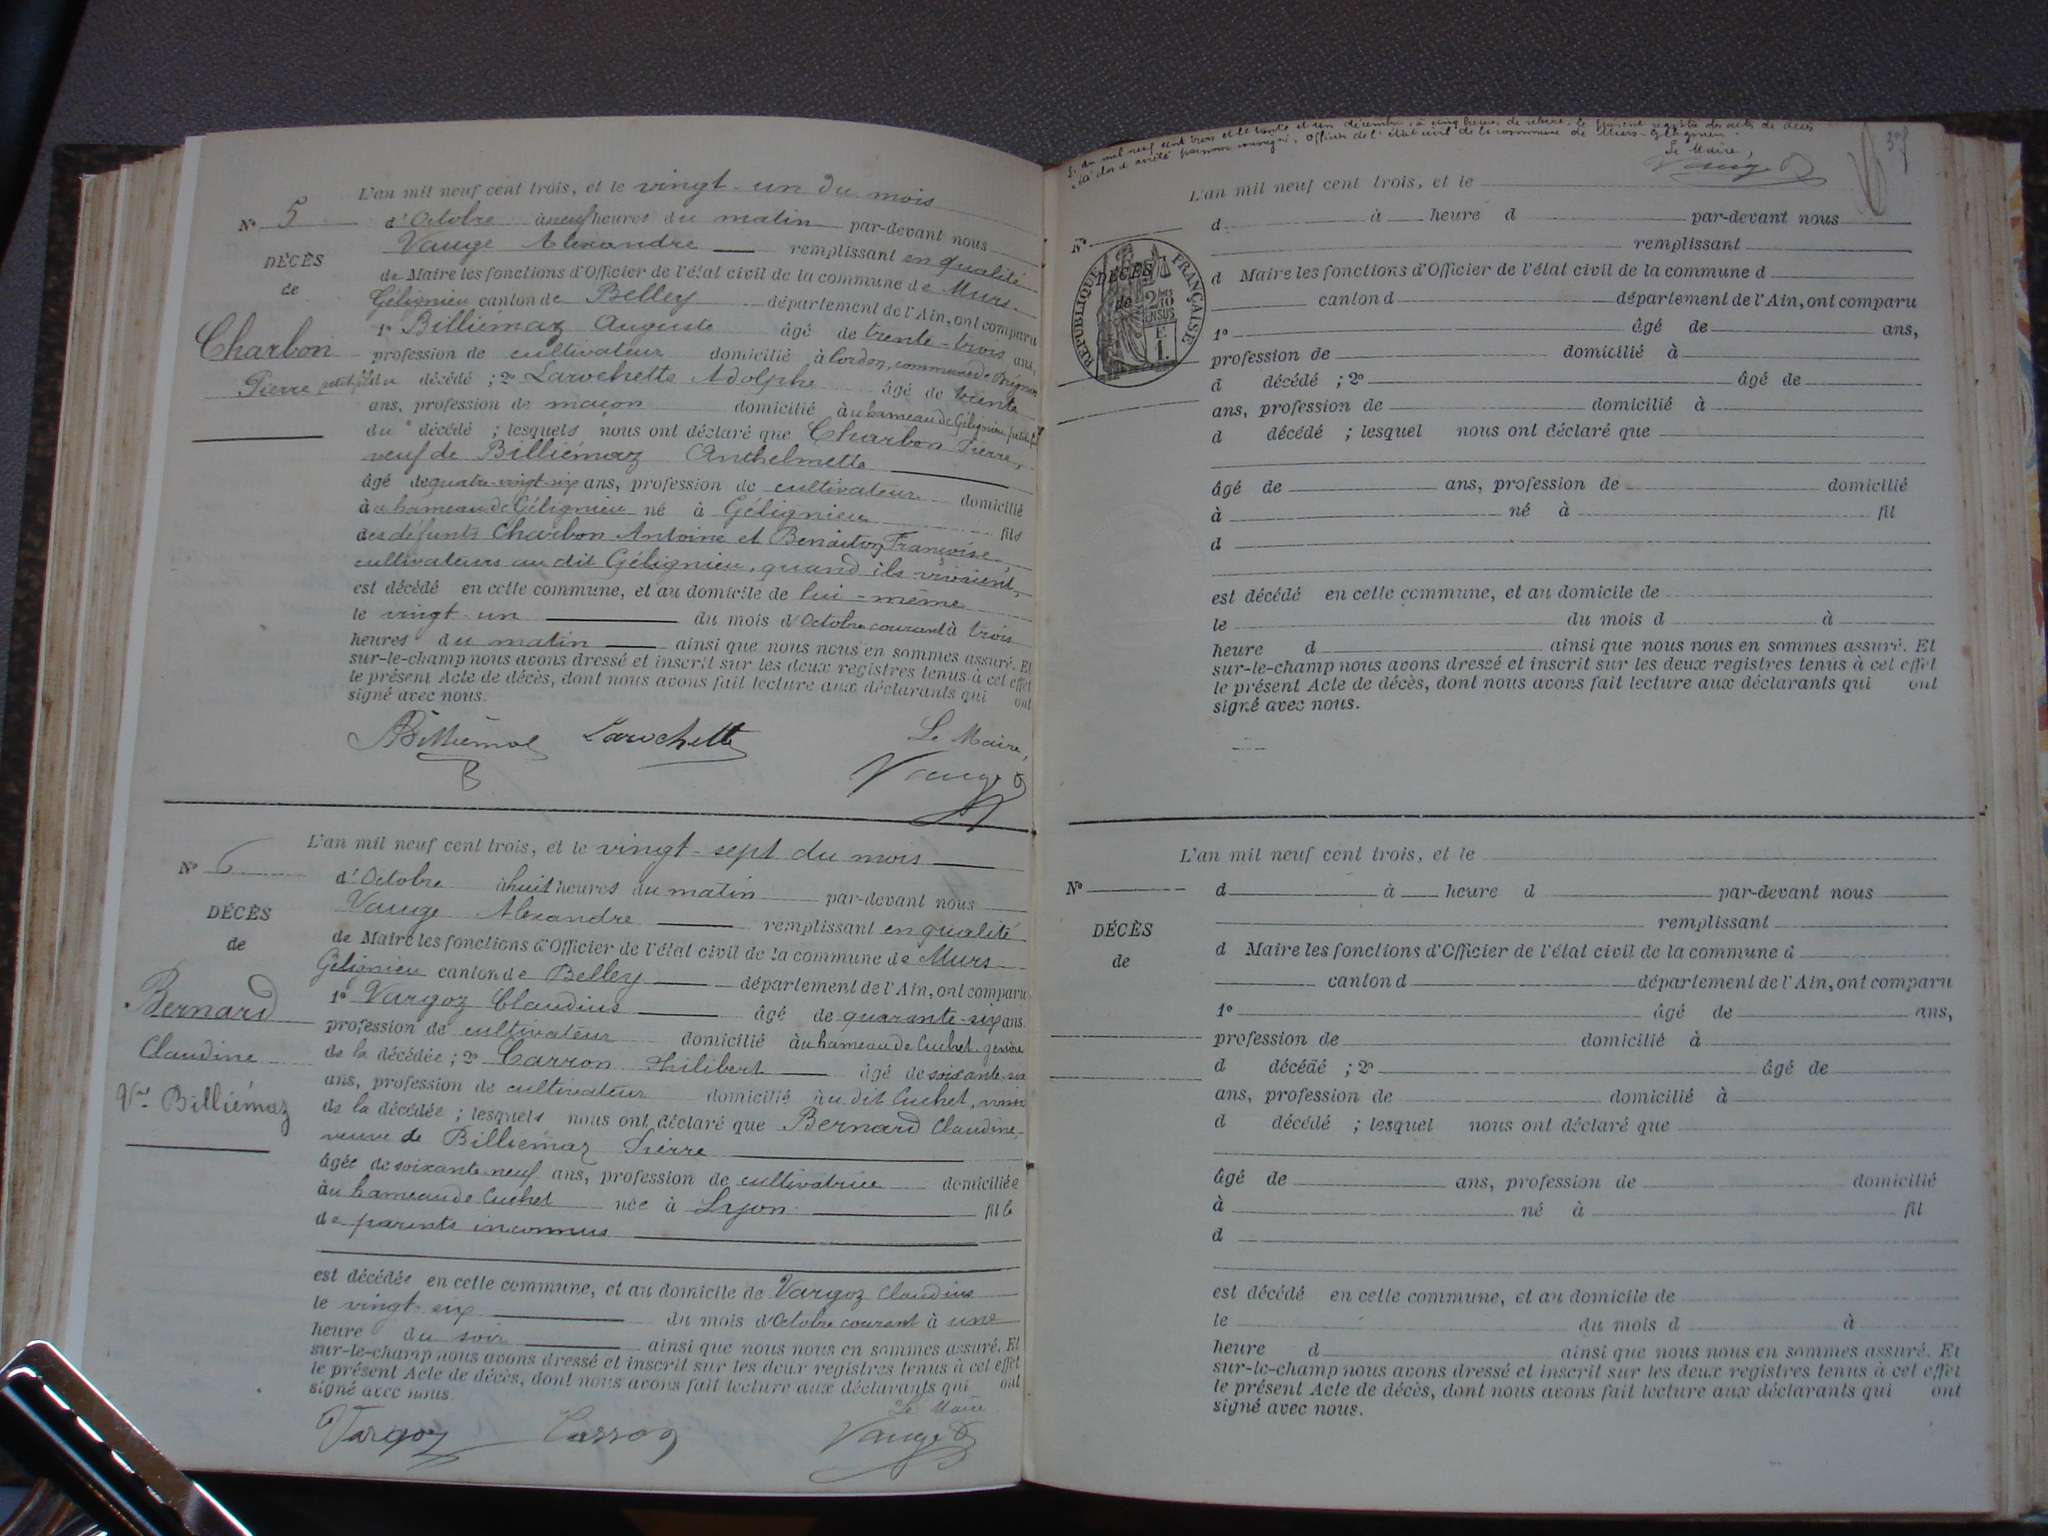 L'an mil neuf cent trois, et le vingt-un du mois
N° 5
d'Octobre à neuf heures du matin par-devant nous
Vauge Alexandre remplissant en qualité
DÉCÈS
de Maire les fonctions d'Officier de l'état civil de la commune de Murs-
de
Gélignieu canton de Belley département de l'Ain, ont comparu
1° Billiémaz Auguste âgé de trente-trois ans,
Charbon
profession de cultivateur domicilié à lordon, commune de
Pierre
du décédé ; 2° Larochette Adolphe âgé de trente
ans, profession de maçon domicilié à u hameau de Gélignieu,
du décédé ; lesquels nous ont déclaré que Charbon Pierre,
veuf de Billiémaz Anthelmette
âgé de quatre-vingt-six ans, profession de cultivateur domicilié
à u hameau de Gélignieu né à Gélignieu fils
des défunts Charbon Antoine et Benaiton Françoise,
cultivateurs au dit Gélignieu, quand ils vivaient,
est décédé en cette commune, et au domicile de lui-même
le vingt-un du mois d'Octobre courant à trois
heures du matin ainsi que nous nous en sommes assuré. Et
sur-le-champ nous avons dressé et inscrit sur les deux registres tenus à cet effet
le présent Acte de décès, dont nous avons fait lecture aux déclarants qui ont
signé avec nous.
Billiémaz Larochette Le Maire,
Vauge
L'an mil neuf cent trois, et le vingt-sept du mois
N° 6
d'Octobre à huit heures du matin par-devant nous
Vauge Alexandre remplissant en qualité
DÉCÈS
de Maire les fonctions d'Officier de l'état civil de la commune de Murs
de
Gélignieu canton de Belley département de l'Ain, ont comparu
Bernard
1° Vargoz Claudius âgé de quarante-six ans
profession de cultivateur domicilié à u hameau de Cuchet, gendre
Claudine
de la décédée ; 2° Carron Philibert âgé de soixante-six
ans, profession de cultivateur domicilié à u dit Cuchet, voisin
Vve Billiémaz
de la décédée ; lesquels nous ont déclaré que Bernard Claudine,
veuve de Billiémaz Pierre
âgée de soixante-neuf ans, profession de cultivatrice domiciliée
à u hameau de Cuchet née à Lyon fille
de parents inconnus
est décédée en cette commune, et au domicile de Vargoz Claudius
le vingt-six du mois d'Octobre courant à une
heure du soir ainsi que nous nous en sommes assuré. Et
sur-le-champ nous avons dressé et inscrit sur les deux registres tenus à cet effet
le présent Acte de décès, dont nous avons fait lecture aux déclarants qui ont
signé avec nous.
Le Maire
Vargoz Carron Vauge
L'an mil neuf cent trois et le trente et un décembre, à cinq heures de relevé, le présent registre des actes de décès
a été clos et arrêté par nous soussigné, Officier de l'état civil de la commune de Murs-Gélignieu.
Le Maire,
Vauge
L'an mil neuf cent trois, et le
N°
d à heure d par-devant nous
remplissant
RÉPUBLIQUE FRANÇAISE
DÉCÈS
de
d Maire les fonctions d'Officier de l'état civil de la commune d
canton d département de l'Ain, ont comparu
1° âgé de ans,
profession de domicilié à
d décédé ; 2° âgé de
ans, profession de domicilié à
d décédé ; lesquel nous ont déclaré que
âgé de ans, profession de domicilié
à né à fil
d
est décédé en cette commune, et au domicile de
le du mois d à
heure d ainsi que nous nous en sommes assuré. Et
sur-le-champ nous avons dressé et inscrit sur les deux registres tenus à cet effet
le présent Acte de décès, dont nous avons fait lecture aux déclarants qui ont
signé avec nous.
L'an mil neuf cent trois, et le
N°
d à heure d par-devant nous
remplissant
DÉCÈS
d Maire les fonctions d'Officier de l'état civil de la commune d
de
canton d département de l'Ain, ont comparu
1° âgé de ans,
profession de domicilié à
d décédé ; 2° âgé de
ans, profession de domicilié à
d décédé ; lesquel nous ont déclaré que
âgé de ans, profession de domicilié
à né à fil
d
est décédé en cette commune, et au domicile de
le du mois d à
heure d ainsi que nous nous en sommes assuré. Et
sur-le-champ nous avons dressé et inscrit sur les deux registres tenus à cet effet
le présent Acte de décès, dont nous avons fait lecture aux déclarants qui ont
signé avec nous.